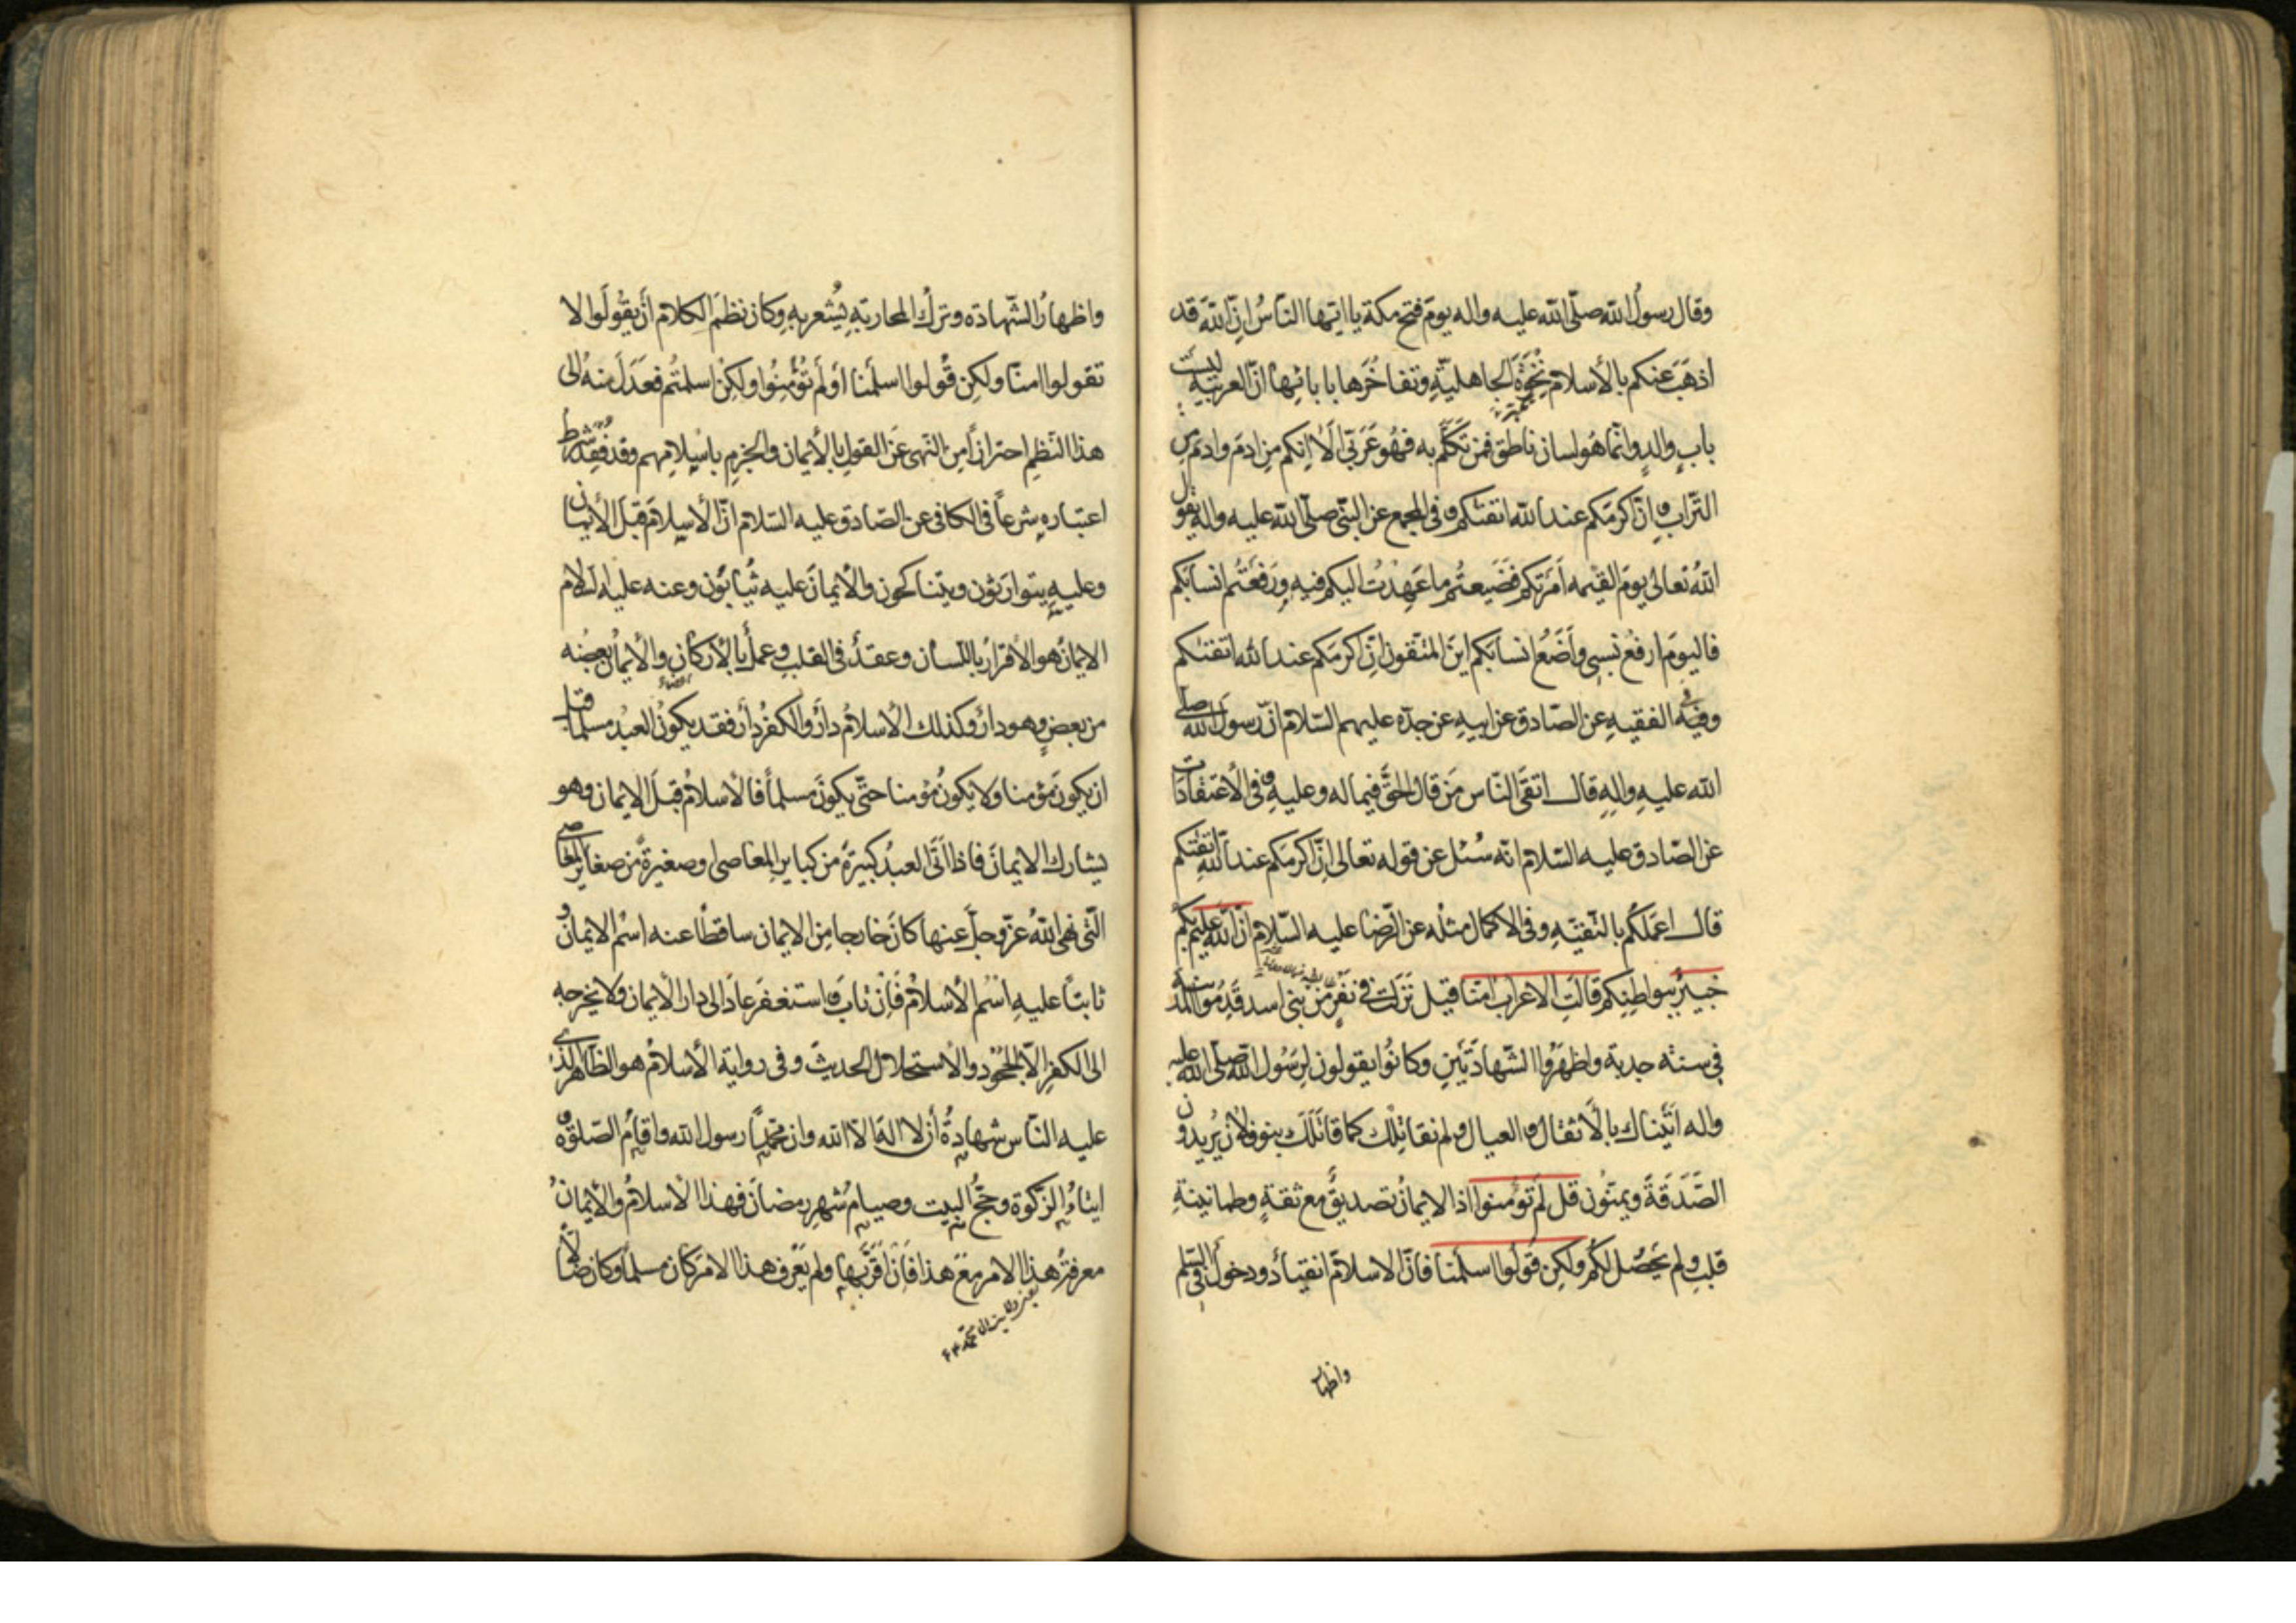 وقال رسولُ الله صلّى الله عليه واله يومَ فتح مكة يا ايّها النّاسُ انّ اللهَ قد
اذهَبَ عنكم بالأسلام نِخْوَةَ الجاهليّةِ وتفاخُرَها باٰبائِها انّ العربيّةَ ليست
بابٍ والدٍ وانّما هُو لسان ناطق فمن تكلّم به فهُو عَرَبىّ اَلا اِنكم مِن ادمَ وادمَ من
التّرابِ و انّ اكرمَكم عند الله اتقٰىكم و فى المجمع عن النبّى صلّى الله عليه واله يقول
اللهُ تعالىٰ يومَ القيٰمه اَمَرتكم فَضَيعتُم ما عَهِدْتُ اليكم فيه ورَفَعتُم انسابَكم
فاليومَ ارفعُ نسبى وأَضَعُ انسابَكم اينَ المتّقون انّ اكرمَكم عند الله اتقىٰكم
وفى الفقيهِ عن الصّادق عن ابيهِ عن جدّه عليهم السّلام انّ رسولَ الله صلّى
الله عليهِ والهِ قال اتقَى النّاس مَن قال الحقَّ فيما له وعليهِ و فى الأعتقادات
عن الصّادق عليه السّلام انّه سُئل عن قوله تعالى انّ اكرمَكم عند اللهِ اتقٰىكم
قال اعمَلكُم بالتّقيّهِ وفى الاكمال مثلُه عن الرّضا عليه السّلام انّ اللهَ عليمٌ بكم
خبيرٌ ببواطنِكم قالَتِ الاَعرابُ اٰمَنّا قيل نَزَلَت فى نفَرٍ من بنى اسد قَدِمُوا المدينة
فى سنته جدبة واظهَرُوا الشّهادتَين وكانُوا يقولون لِرَسُول الله صلّى الله عليه
واله اَتَيناك بالأثقال و العيال ولم نقاتِلْك كما قاتَلَك بنو فلان يُريدون
الصّدَقَةَ ويمنّون قل لَم تؤمنوا اذ الايمانُ تصديقٌ مع ثقةٍ وطمانينةِ
قلب ولم يَحصُل لكُم ولكِن قُولُوا اسلَمنا فانّ الاسلامَ انقيادٌ ودخول فى السّلم
واظهار
واظهارُ الشّهادة وتركُ المحاربَةِ يُشعر بهِ وكان نظمُ الكلام اَن يَقُولُوا لا
تقولوا امنّا ولكِن قُولوا اسلَمنا اَو لَم تُؤمِنُوا ولكن اسلمتُم فعَدَلَ منه الى
هذا النَظمِ احترازًا مِن النّهى عَن القول بالأيمان والجزمِ باسلامِهم وقد فُقِدَ شرط
اعتبارِه شرعًا فى الكافى عن الصّادق عليه السّلام انّ الأسلامَ قبلَ الأيمان
وعليهِ يتوارَثون ويتناكحون والأيمانَ عليه يُثابُون وعنه عليه السّلام
الايمانُ هو الأقرارُ باللّسان وعقدٌ فى القلب وعملٌ بالأركان والأيمانُ بعضُه
من بعضٍ وهو دارٌ وكذلك الأسلامُ دارٌ والكفرُ دارٌ فقد يكونُ العبدُ مسلمًا قبل
ان يكون مؤمنا ولا يكون مُؤمنا حتّى يكونَ مسلماً فالأسلامُ قبلَ الايمان وهو
يشارك الايمانَ فاذا اَتَى العبدُ كبيرةً من كباير المعاصى او صغيرةً من صغاير المعاصى
الّتى نهى اللهُ عزّ وجلّ عنها كانَ خارجا مِن الايمان ساقطًا عنه اسمُ الايمانُ و
ثابتًا عليهِ اسْم الأسلام فَاِن تابَ واستغفرَ عادَ الى دار الأيمان ولا يخرجه
الى الكفرِ الّا الجحُود والأستحلال الحديث وفى رواية الأسلامُ هو الظّاهر الّذى
عليه النّاس شهادةُ اَن لا الهَ الّا الله وان محمّدًا رسول الله واقامُ الصّلوة و
ايتاءُ الزكوة وحجُّ البيت وصيامُ شهر رمضانَ فهذا الأسلامُ والأيمانُ
معرفةُ هذا الامر مَعَ هذا فَاِن اَقرّ بها ولم يَعرف هذا الامر كان مسلمًا وكان ضالًّا